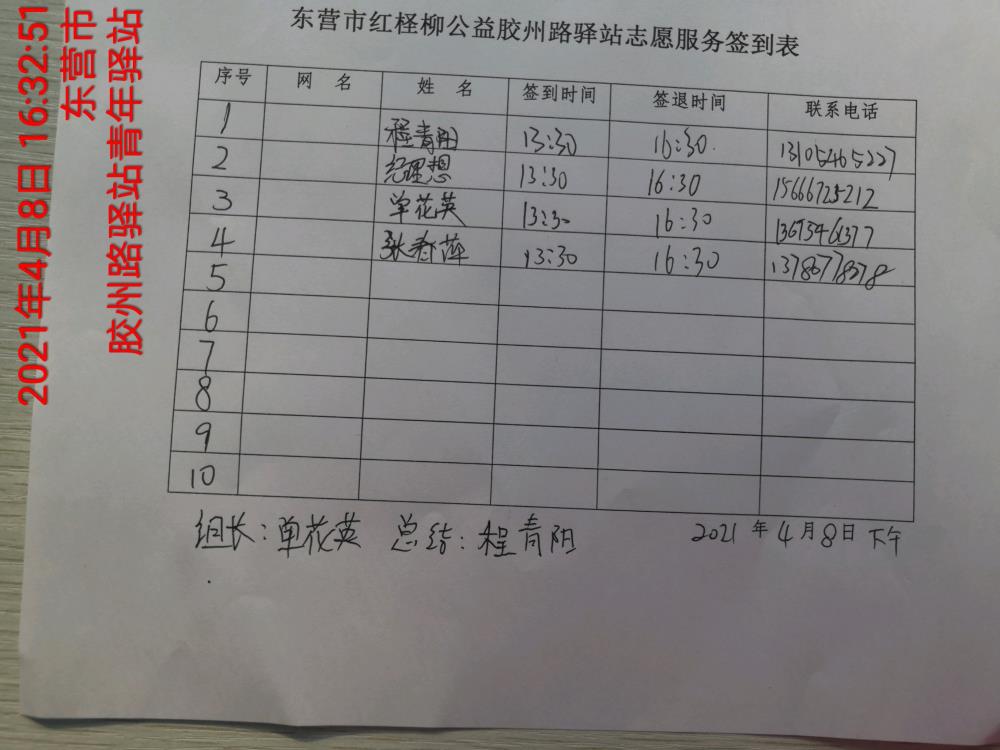 东营市红柽柳公益胶州路驿站志愿服务签到表
序号 网 名 姓 名 签到时间 签退时间 联系电话
1 程青阳 13:30 16:30 13105465227
2 纪理想 13:30 16:30 15666725212
3 单花英 13:30 16:30
4 张春萍 13:30 16:30
5
6
7
8
9
10
组长:单花英 总结:程青阳 2021年4月8日下午
2021年4月8日 16:32:51
东营市
胶州路驿站青年驿站